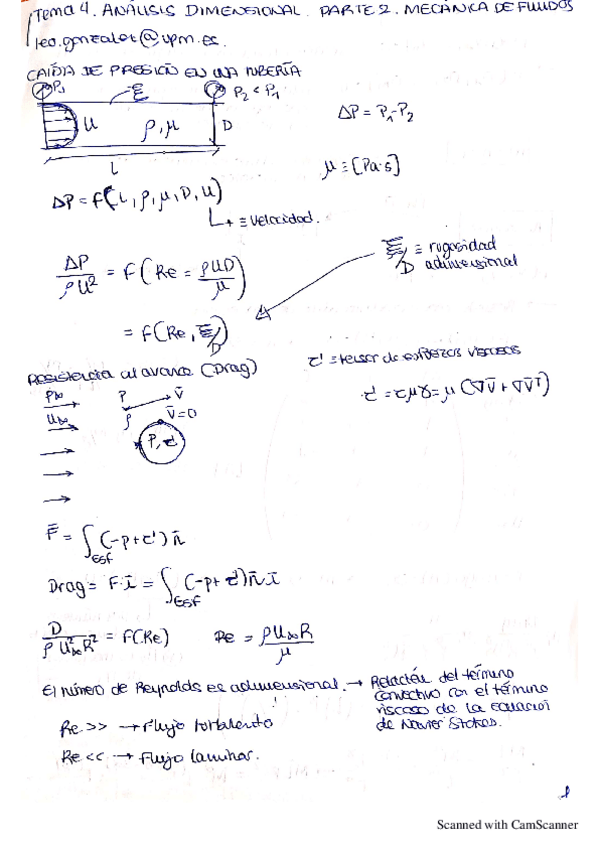 Tema 4. ANÁLISIS DIMENSIONAL. PARTE 2. MECÁNICA DE FLUIDOS
leo.gonzalez@upm.es.
CAÍDA DE PRESIÓN EN UNA TUBERÍA
P₁ ε P₂ < P₁
U ρ, μ D
L
ΔP = P₁-P₂
μ ≡ [Pa·s]
ΔP = f(L, ρ, μ, D, U)
↳ ≡ velocidad.
ΔP/ρU² = f(Re = ρUD/μ)
ε/D ≡ rugosidad adimensional
= f(Re, ε/D)
Resistencia al avance (Drag)
τ' ≡ tensor de esfuerzos viscosos
P∞ P v̄
U∞ ρ v̄=0
P, τ
τ' = τμγ = μ (∇v̄ + ∇v̄ᵀ)
F̄ = ∫ESF (-p+τ') n̄
Drag = F·ī = ∫ESF (-p+τ')n̄·ī
D/ρU∞²R² = f(Re) Re = ρU∞R/μ
El número de Reynolds es adimensional. → Relación del término
convectivo con el término
viscoso de la ecuación
de Navier Stokes.
Re >> → Flujo turbulento
Re << → Flujo laminar.
1
Scanned with CamScanner